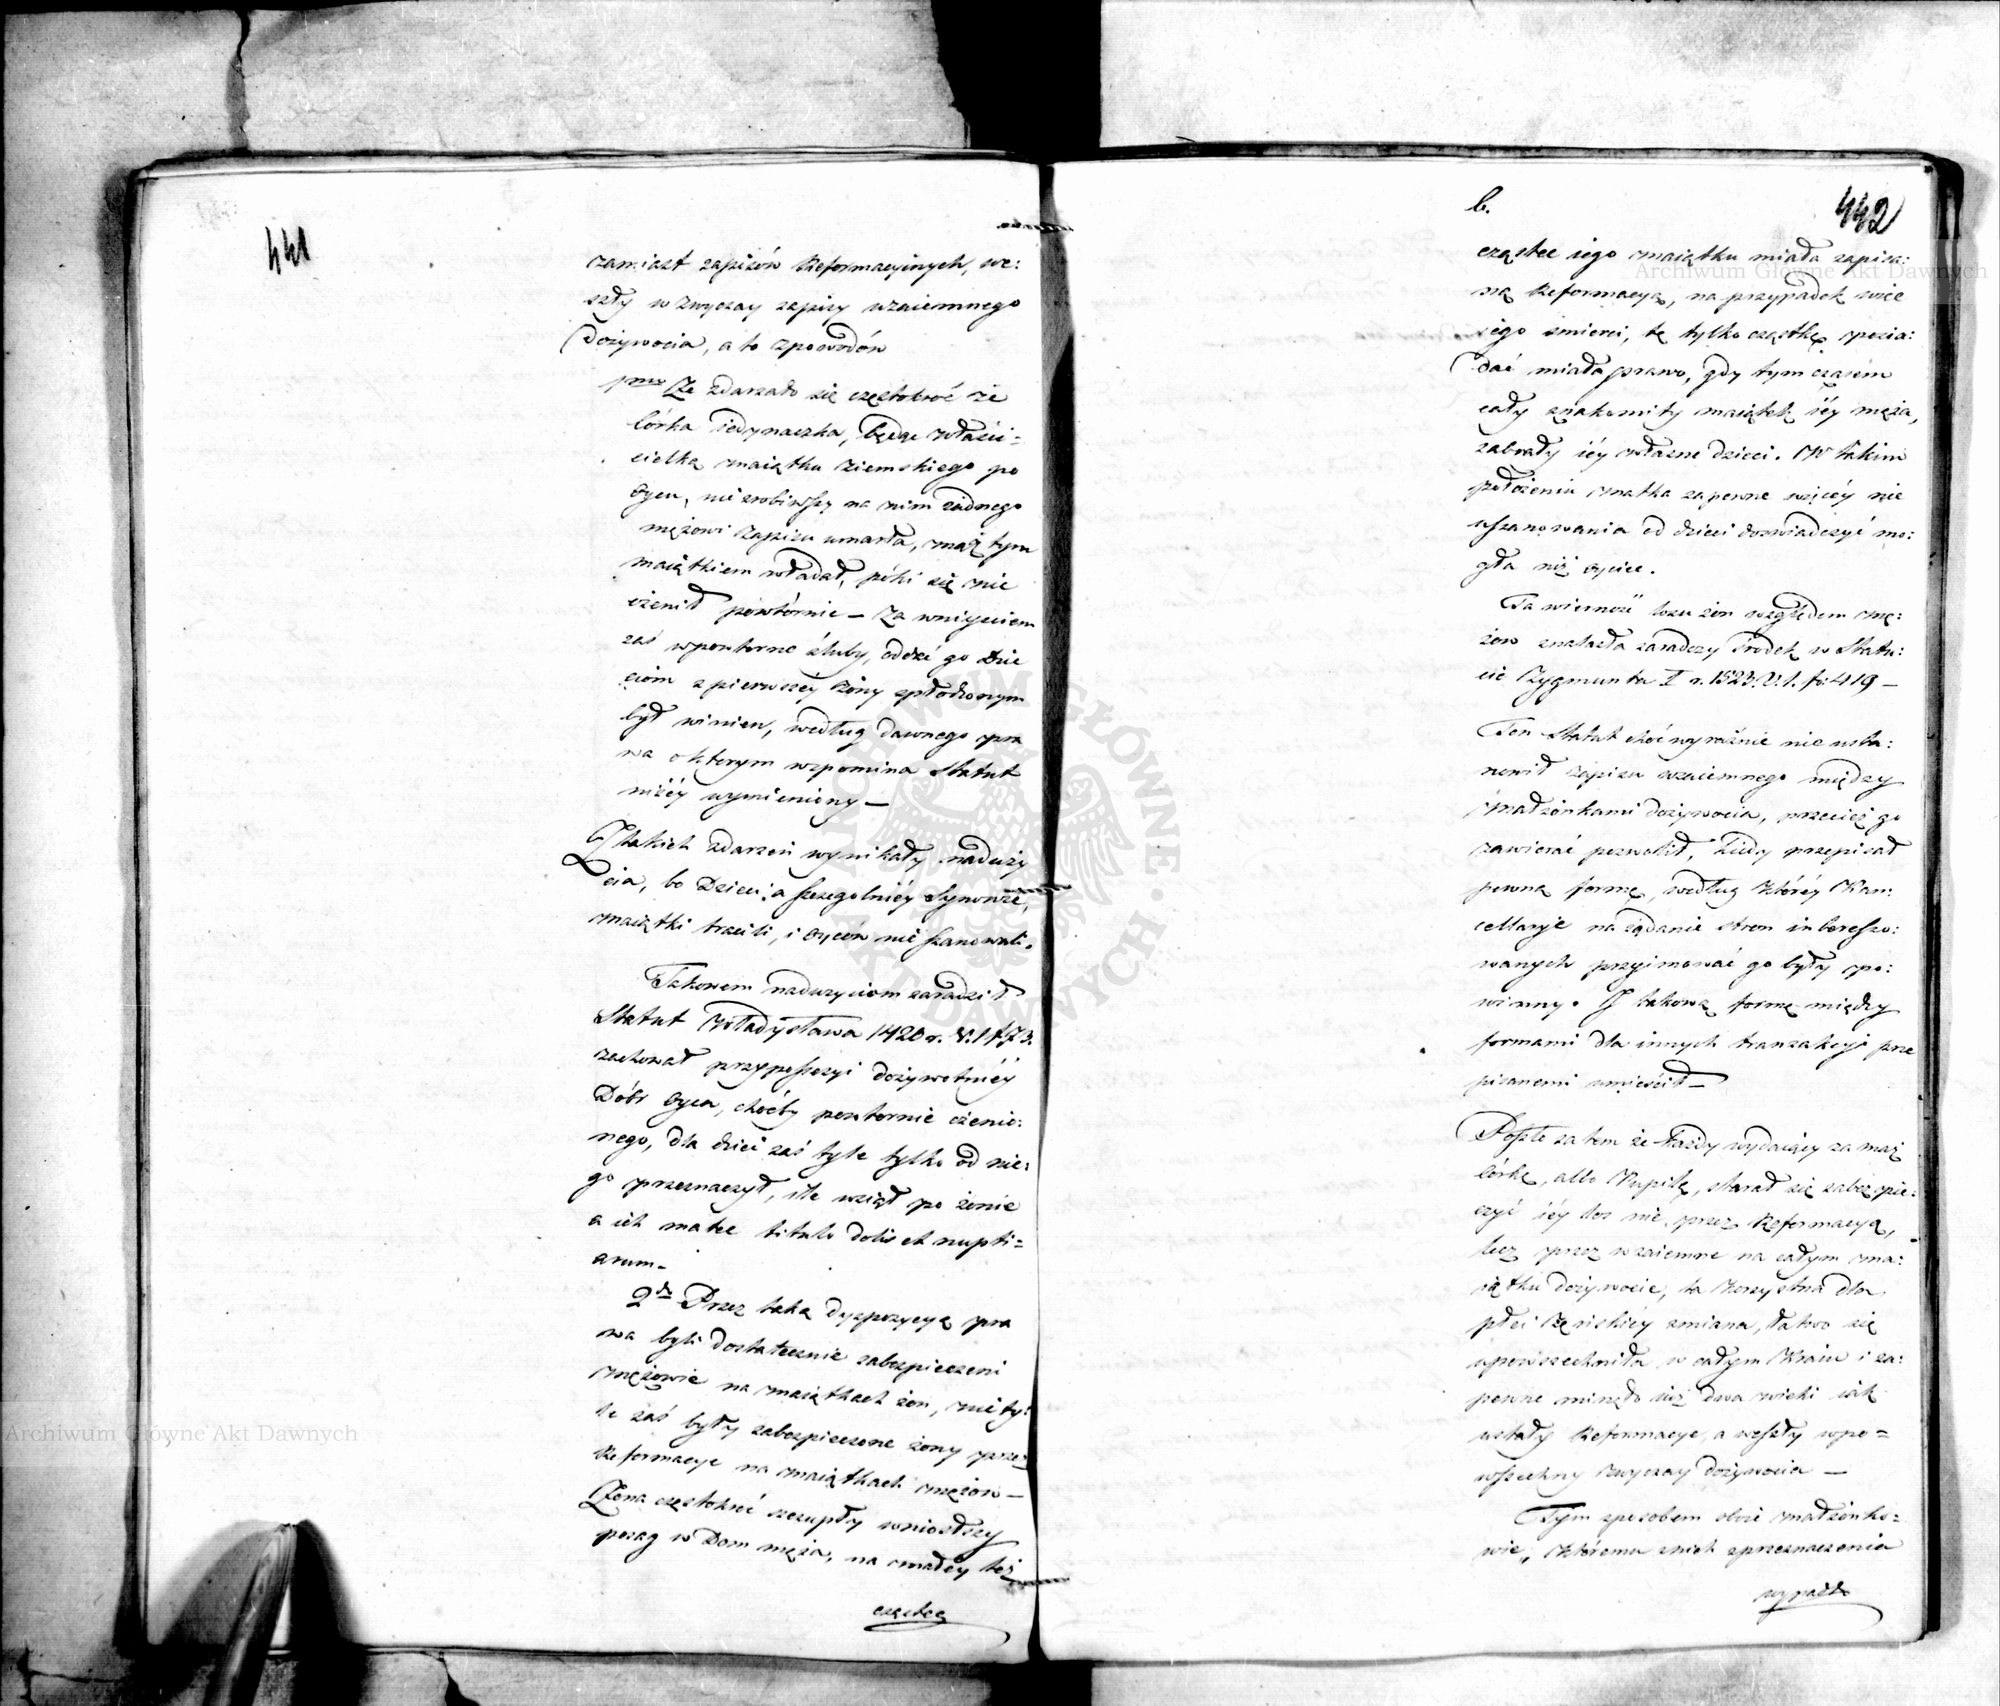 441
zamiast zapisów Reformacyinych, we:
szły w zwyczay zapisy wzaiemnego
Dożywocia, a to zpowodów
pmo Ze zdarzało się częstokroć że
Córka iedynaczka, będąc właści=
cielką maiątku ziemskiego po
Oycu, nie zrobiwszy na nim żadnego
mężowi zapisu umarła, mąż tym
maiątkiem władał, póki się nie
ożenił powtórnie – Za wniyściem
zaś wpowtorne śluby, oddać go Dzie
ciom z pierwszey żony spłodzonym
był winien, według dawnego pra
wa o którym wspomina Statut
niżéy wymieniony –
Z takich zdarzeń wynikały naduży
cia, bo Dzieci a szczegolniéy Synowie,
maiątki tracili, i oyców nie szanowali.
Takowem nadużyciom zaradził
Statut Władysława 1420 r. V. 1 f. 73.
zachował przy possessyi dożywotniéy
Dóbr Oyca, choćby powtornie ożenio:
nego, dla dzieci zaś tyle tylko od nie:
go przeznaczył, ile wziął po żonie
a ich matce titulo dotis et nupti=
arum.
2do Przez taką dyspozycyą pra
wa byli dostatecznie zabezpieczeni
mężowie na maiątkach żon, nie ty:
le zaś były zabezpieczone żony przez
Reformacye na maiątkach mężów –
Żona częstokroć szczupły wniosłszy
posag w Dom męża, na małéy też
cząstce
b.
442
cząstce iego maiątku miała zapisa:
ną Reformacyą, na przypadek więc
iego śmierci, tę tylko cząstkę posia:
dać miała prawo, gdy tym czasem
cały znakomity maiątek iéy męża,
zabrały iéy własne dzieci. W takim
położeniu matka zapewne więcéy nie
uszanowania od dzieci doświadczyć mo:
gła niż oyciec.
Ta wierność losu żon względem mę:
żow znalazła zaradczy środek w Statu:
cie Zygmunta I r. 1523. V. 1. fo: 419 –
Ten Statut choć wyraźnie nie usta:
nowił zapisu wzaiemnego między
małżonkami dożywocia, przecież go
zawierać pozwolił, kiedy przepisał
pewną formę, według któréy Kan:
cellarye na żądanie stron interesso:
wanych przyimować go były po:
winny. I takową formę między
formami dla innych tranzakcyi prze
pisanemi umieścił –
Poszło zatem że każdy wydaiący za mąż
Córkę, albo Pupilkę, starał się zabezpie:
czyć iéy los nie przez Reformacyą,
lecz przez wzaiemne na całym ma:
iątku dożywocie, ta korzystna dla
płci żeńskiéy zmiana, łatwo się
upowszechniła w całym Kraiu i za:
pewne minęło iuż dwa wieki iak
ustały Reformacye, a weszły wpo=
wszechny zwyczay dożywocia –
Tym sposobem oboie małżonko=
wie, któremu znich zprzeznaczenia
wypadło
Archiwum Główne Akt Dawnych
Archiwum Główne Akt Dawnych
ARCHIWUM GŁÓWNE AKT DAWNYCH